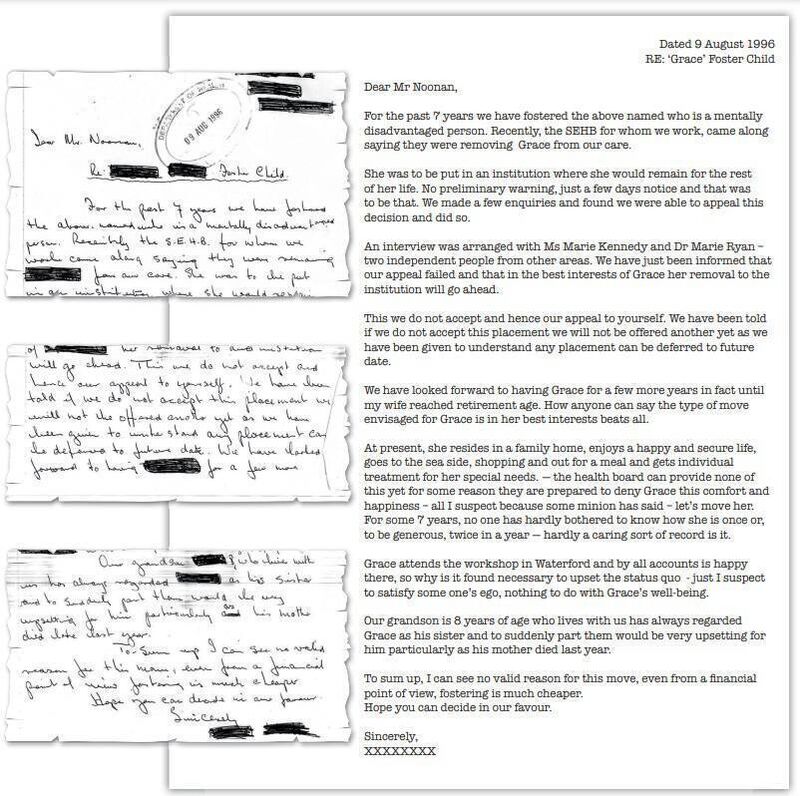 DEPARTMENT OF HEALTH
09 AUG 1996
Dear Mr. Noonan,
Re: Foster Child.
For the past 7 years we have fostered
the above named who is a mentally disadvantaged
person. Recently the S.E.H.B. for whom we
work came along saying they were removing
from our care. She was to be put
in an institution where she would remain
of her removal to an institution
will go ahead. This we do not accept and
hence our appeal to yourself. We have been
told if we do not accept this placement we
will not be offered another yet as we have
been given to understand any placement can
be deferred to future date. We have looked
forward to having for a few more
Our grandson who lives with
us has always regarded as his sister
and to suddenly part them would be very
upsetting for him particularly as his mother
died late last year.
To sum up I can see no valid
reason for this move, even from a financial
point of view fostering is much cheaper
Hope you can decide in our favour.
Sincerely
Dated 9 August 1996
RE: ‘Grace’ Foster Child
Dear Mr Noonan,
For the past 7 years we have fostered the above named who is a mentally
disadvantaged person. Recently, the SEHB for whom we work, came along
saying they were removing Grace from our care.
She was to be put in an institution where she would remain for the rest
of her life. No preliminary warning, just a few days notice and that was
to be that. We made a few enquiries and found we were able to appeal this
decision and did so.
An interview was arranged with Ms Marie Kennedy and Dr Marie Ryan –
two independent people from other areas. We have just been informed that
our appeal failed and that in the best interests of Grace her removal to the
institution will go ahead.
This we do not accept and hence our appeal to yourself. We have been told
if we do not accept this placement we will not be offered another yet as we
have been given to understand any placement can be deferred to future
date.
We have looked forward to having Grace for a few more years in fact until
my wife reached retirement age. How anyone can say the type of move
envisaged for Grace is in her best interests beats all.
At present, she resides in a family home, enjoys a happy and secure life,
goes to the sea side, shopping and out for a meal and gets individual
treatment for her special needs. – the health board can provide none of
this yet for some reason they are prepared to deny Grace this comfort and
happiness – all I suspect because some minion has said – let’s move her.
For some 7 years, no one has hardly bothered to know how she is once or,
to be generous, twice in a year – hardly a caring sort of record is it.
Grace attends the workshop in Waterford and by all accounts is happy
there, so why is it found necessary to upset the status quo - just I suspect
to satisfy some one’s ego, nothing to do with Grace’s well-being.
Our grandson is 8 years of age who lives with us has always regarded
Grace as his sister and to suddenly part them would be very upsetting for
him particularly as his mother died last year.
To sum up, I can see no valid reason for this move, even from a financial
point of view, fostering is much cheaper.
Hope you can decide in our favour.
Sincerely,
XXXXXXXX